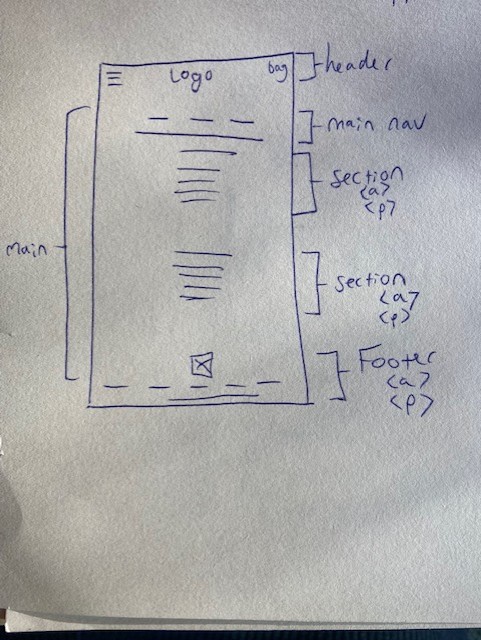 Logo
bag
header
main nav
section
<a>
<p>
main
section
<a>
<p>
Footer
<a>
<p>